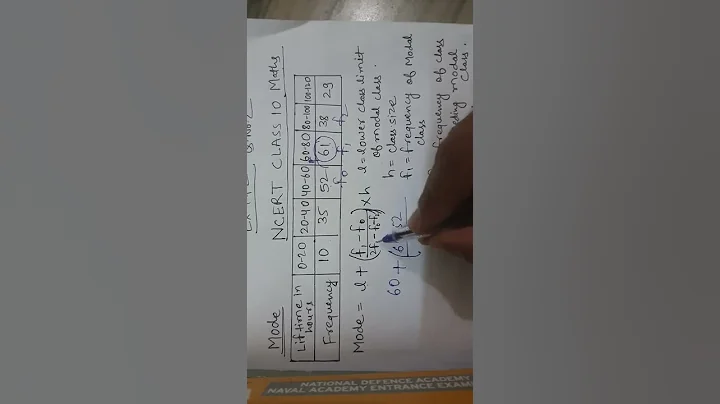 Mode
NCERT CLASS 10 Maths
Lifetime in hours 0-20 20-40 40-60 60-80 80-100 100-120
Frequency 10 35 52 61 38 29
f0 f1 f2
Mode = l + (f1-f0 / 2f1-f0-f2) x h
l = lower class limit
of modal class.
h = class size
f1 = frequency of Modal
class
frequency of class
modal
class.
60 + ( 52
NATIONAL DEFENCE ACADEMY
NAVAL ACADEMY ENTRANCE EXAM